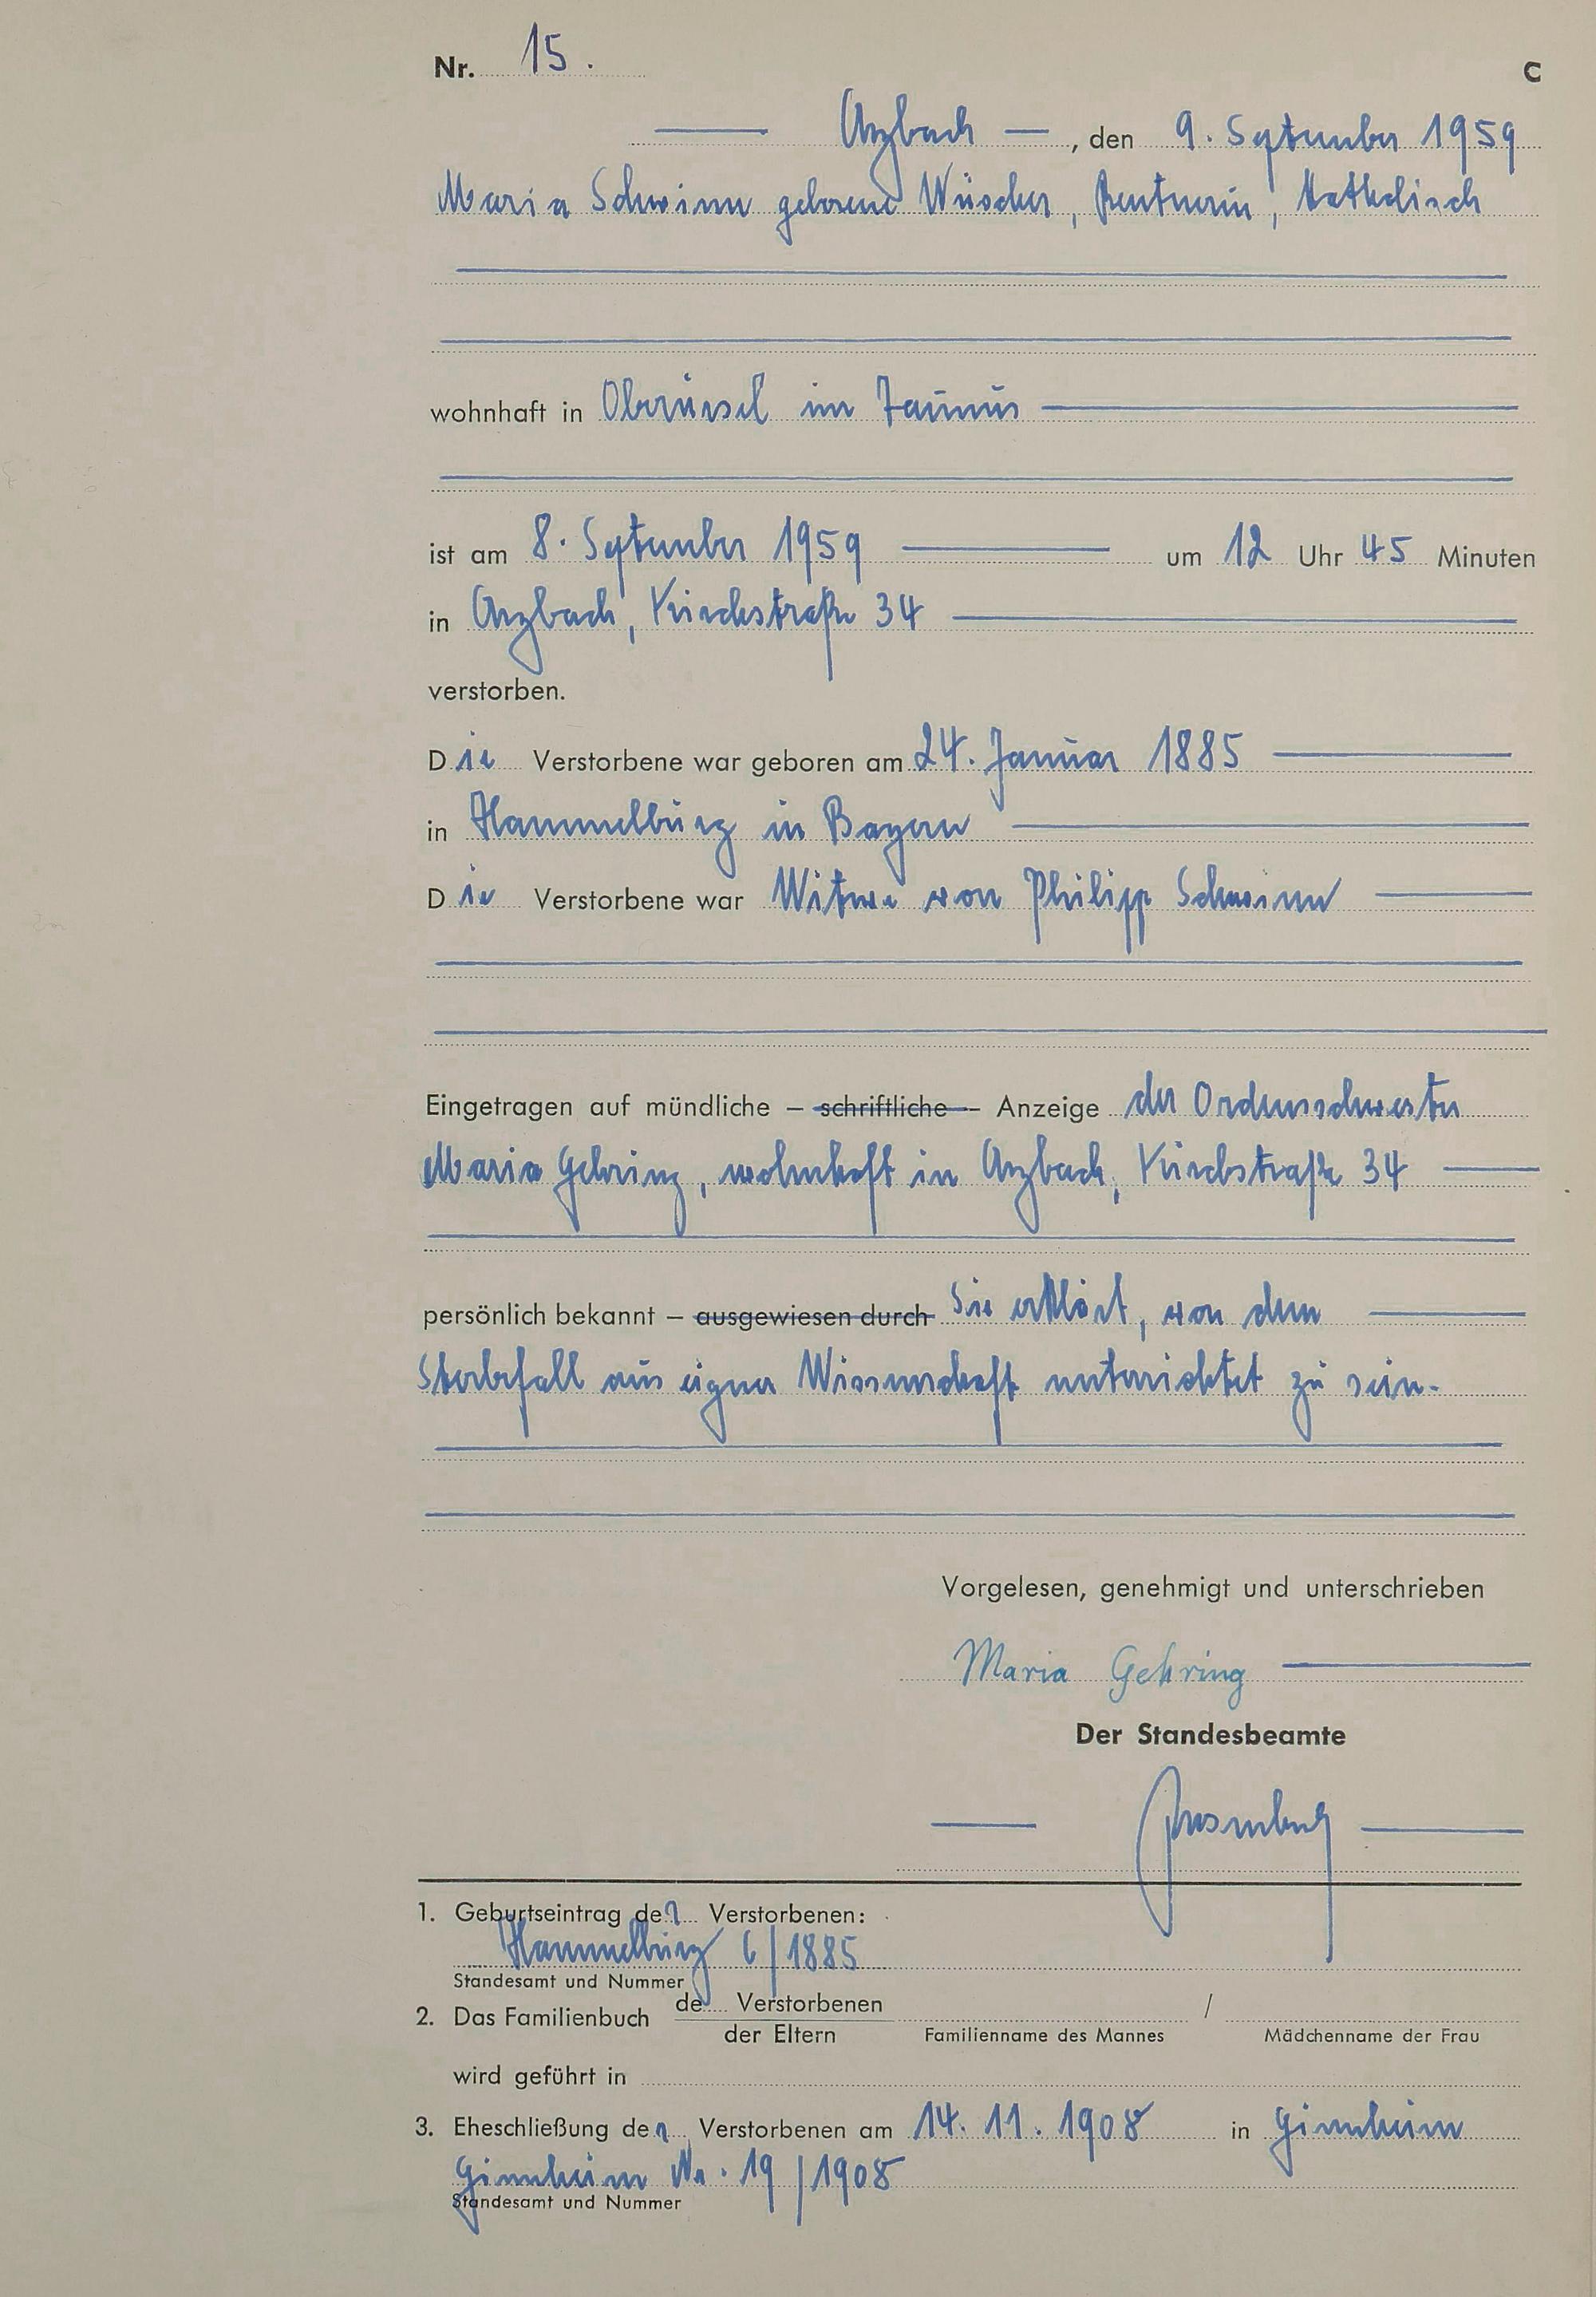 Nr. 15. C
Arzbach, den 9. September 1959
Maria Schwinn geborene Wüscher, Rentnerin, katholisch
wohnhaft in Oberursel im Taunus
ist am 8. September 1959 um 12 Uhr 45 Minuten
in Arzbach, Kirchstraße 34
verstorben.
Die Verstorbene war geboren am 24. Januar 1885
in Hammelburg in Bayern
Die Verstorbene war Witwe von Philipp Schwinn
Eingetragen auf mündliche – schriftliche – Anzeige der Ordensschwester
Maria Gehring, wohnhaft in Arzbach, Kirchstraße 34
persönlich bekannt – ausgewiesen durch Sie erklärt, von dem
Sterbefall aus eigner Wissenschaft unterrichtet zu sein.
Vorgelesen, genehmigt und unterschrieben
Maria Gehring
Der Standesbeamte
1. Geburtseintrag der Verstorbenen:
Hammelburg 6/1885
Standesamt und Nummer
2. Das Familienbuch de Verstorbenen /
der Eltern Familienname des Mannes Mädchenname der Frau
wird geführt in
3. Eheschließung der Verstorbenen am 14. 11. 1908 in Ginnheim
Ginnheim Nr. 19/1908
Standesamt und Nummer